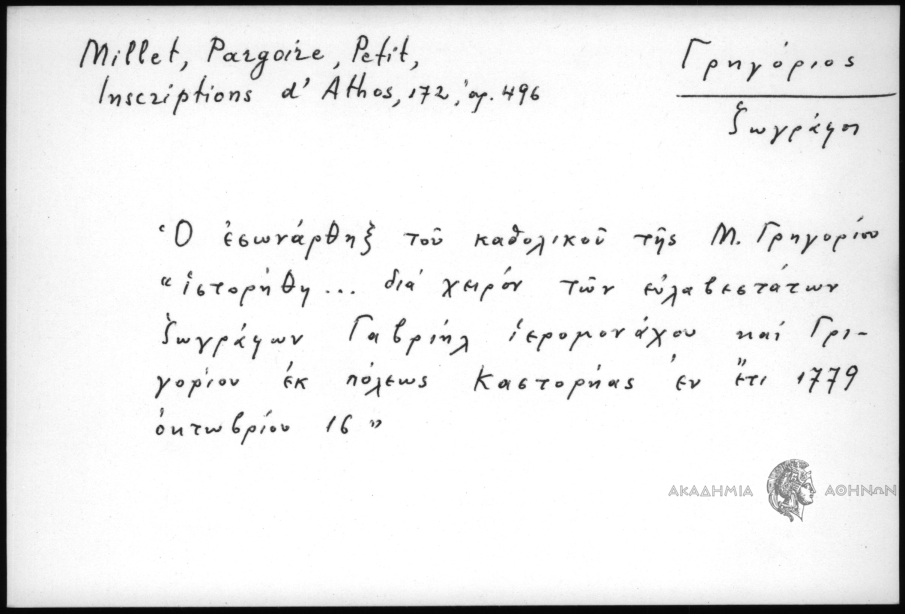 Millet, Pargoire, Petit,
Inscriptions d'Athos, 172, ἀρ. 496
Γρηγόριος
ζωγράφοι
Ὁ ἐσωνάρθηξ τοῦ καθολικοῦ τῆς Μ. Γρηγορίου
"ἱστορήθη... διά χειρόν τῶν εὐλαβεστάτων
ζωγράφων Γαβριήλ ἱερομονάχου καί Γρι-
γορίου ἐκ πόλεως Καστορήας ἐν ἔτι 1779
ὀκτωβρίου 16"
ΑΚΑΔΗΜΙΑ ΑΘΗΝΩΝ